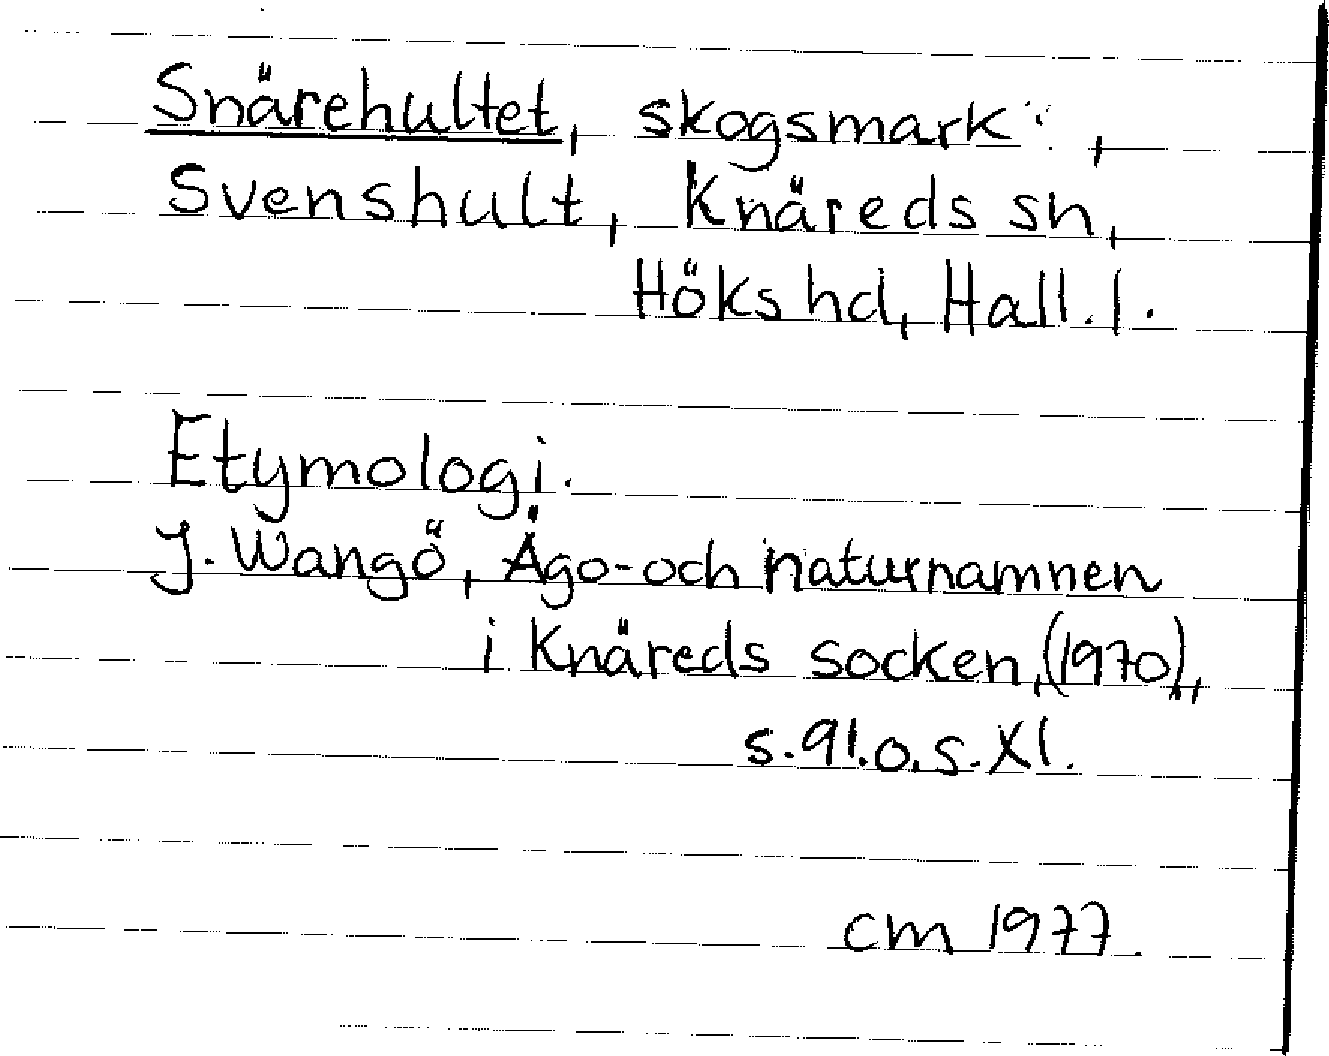 Snärehultet, skogsmark,
Svenshult, Knäreds sn,
Höks hd, Hall. l.
Etymologi.
J. Wangö, Ägo- och naturnamnen
i Knäreds socken, (1970),
s. 91. o. s. XI.
cm 1977.